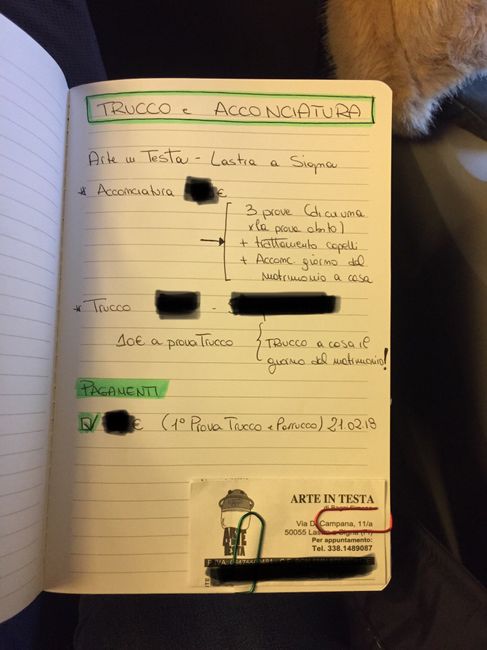 TRUCCO e ACCONCIATURA
Arte in Testa - Lastra a Signa
* Acconciatura €
3 prove (di cui una
x la prova abito)
+ trattamento capelli
+ Acconc. giorno del
matrimonio a casa
* Trucco -
10€ a prova Trucco
TRUCCO a casa il
giorno del matrimonio!
PAGAMENTI
€ (1° Prova Trucco e Parrucco) 21.02.18
ARTE IN TESTA
Via D. Campana, 11/a
50055 Lastra a Signa (FI)
Per appuntamento:
Tel. 338.1489087
ARTE
IN
TESTA